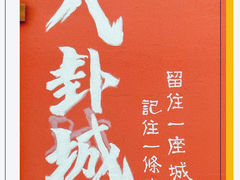 八卦城
留住一座城
記住一條